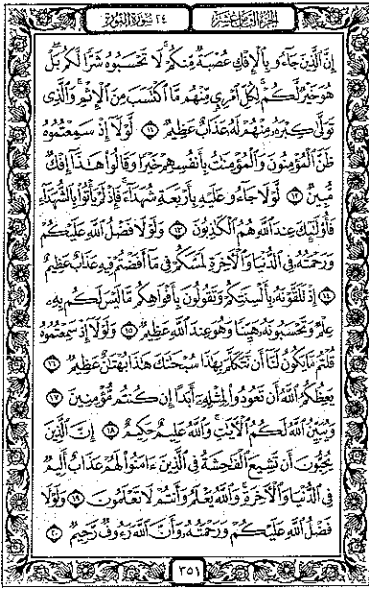 الجزء الثامن عشر ٢٤ سورة النور
إِنَّ الَّذِينَ جَاءُو بِالْإِفْكِ عُصْبَةٌ مِنْكُمْ لَا تَحْسَبُوهُ شَرًّا لَكُمْ بَلْ
هُوَ خَيْرٌ لَكُمْ لِكُلِّ امْرِئٍ مِنْهُمْ مَا اكْتَسَبَ مِنَ الْإِثْمِ وَالَّذِي
تَوَلَّى كِبْرَهُ مِنْهُمْ لَهُ عَذَابٌ عَظِيمٌ ١١ لَوْلَا إِذْ سَمِعْتُمُوهُ
ظَنَّ الْمُؤْمِنُونَ وَالْمُؤْمِنَاتُ بِأَنْفُسِهِمْ خَيْرًا وَقَالُوا هَذَا إِفْكٌ
مُبِينٌ ١٢ لَوْلَا جَاءُو عَلَيْهِ بِأَرْبَعَةِ شُهَدَاءَ فَإِذْ لَمْ يَأْتُوا بِالشُّهَدَاءِ
فَأُولَئِكَ عِنْدَ اللَّهِ هُمُ الْكَاذِبُونَ ١٣ وَلَوْلَا فَضْلُ اللَّهِ عَلَيْكُمْ
وَرَحْمَتُهُ فِي الدُّنْيَا وَالْآخِرَةِ لَمَسَّكُمْ فِي مَا أَفَضْتُمْ فِيهِ عَذَابٌ عَظِيمٌ
١٤ إِذْ تَلَقَّوْنَهُ بِأَلْسِنَتِكُمْ وَتَقُولُونَ بِأَفْوَاهِكُمْ مَا لَيْسَ لَكُمْ بِهِ
عِلْمٌ وَتَحْسَبُونَهُ هَيِّنًا وَهُوَ عِنْدَ اللَّهِ عَظِيمٌ ١٥ وَلَوْلَا إِذْ سَمِعْتُمُوهُ
قُلْتُمْ مَا يَكُونُ لَنَا أَنْ نَتَكَلَّمَ بِهَذَا سُبْحَانَكَ هَذَا بُهْتَانٌ عَظِيمٌ ١٦
يَعِظُكُمُ اللَّهُ أَنْ تَعُودُوا لِمِثْلِهِ أَبَدًا إِنْ كُنْتُمْ مُؤْمِنِينَ ١٧
وَيُبَيِّنُ اللَّهُ لَكُمُ الْآيَاتِ وَاللَّهُ عَلِيمٌ حَكِيمٌ ١٨ إِنَّ الَّذِينَ
يُحِبُّونَ أَنْ تَشِيعَ الْفَاحِشَةُ فِي الَّذِينَ آمَنُوا لَهُمْ عَذَابٌ أَلِيمٌ
فِي الدُّنْيَا وَالْآخِرَةِ وَاللَّهُ يَعْلَمُ وَأَنْتُمْ لَا تَعْلَمُونَ ١٩ وَلَوْلَا
فَضْلُ اللَّهِ عَلَيْكُمْ وَرَحْمَتُهُ وَأَنَّ اللَّهَ رَءُوفٌ رَحِيمٌ ٢٠
٣٥١